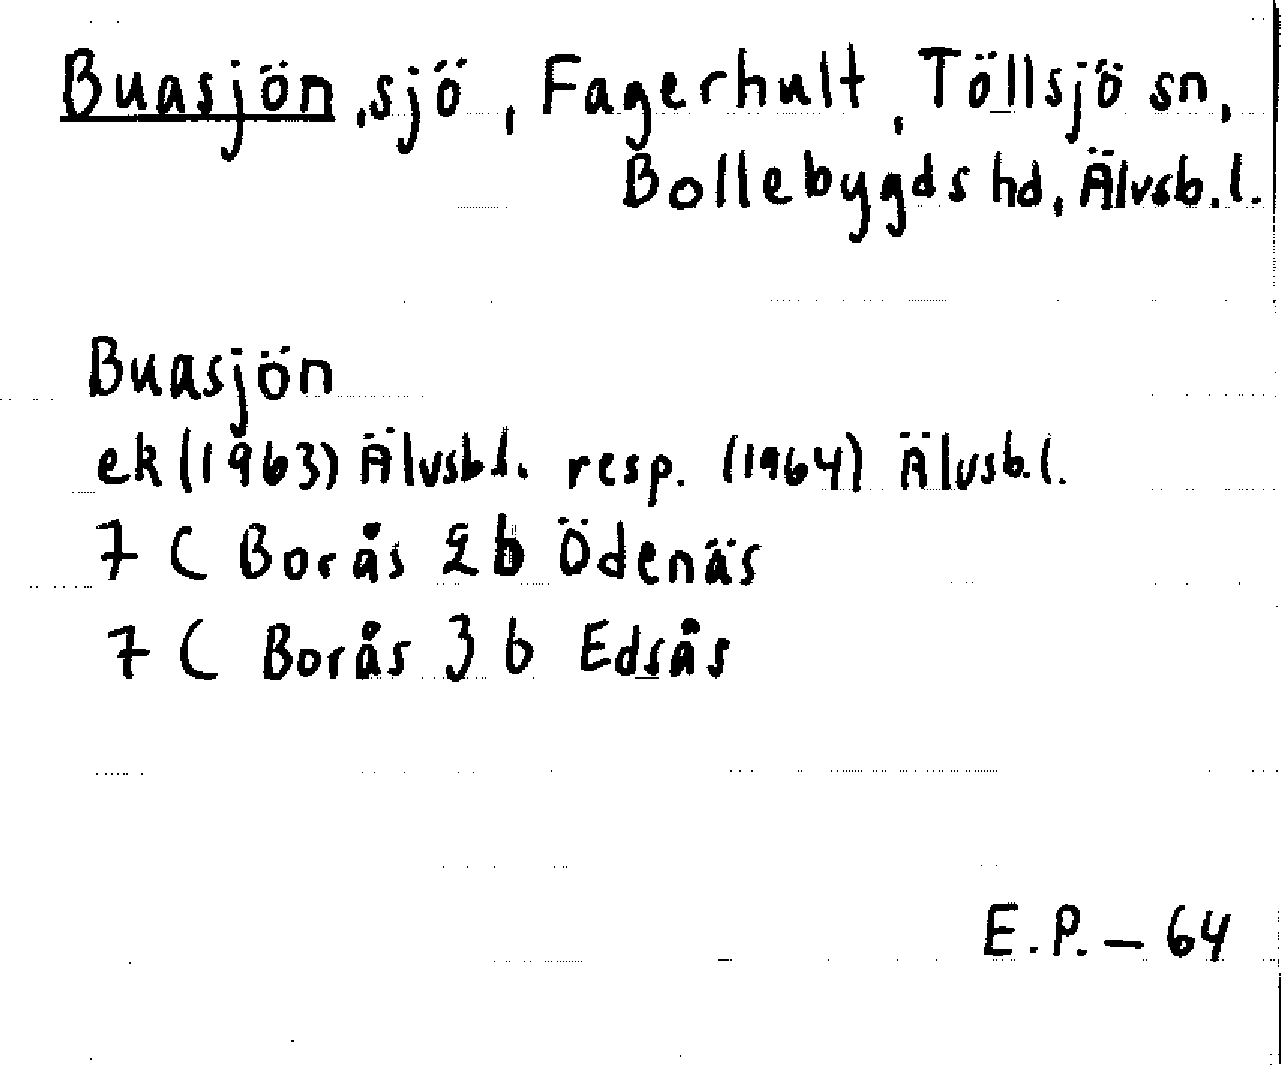 Buasjön, sjö, Fagerhult, Töllsjö sn,
Bollebygds hd, Älvsb. l.
Buasjön
ek (1963) Älvsb l. resp. (1964) Älvsb. l.
7 C Borås 2 b Ödenäs
7 C Borås 3 b Edsås
E. P. – 64